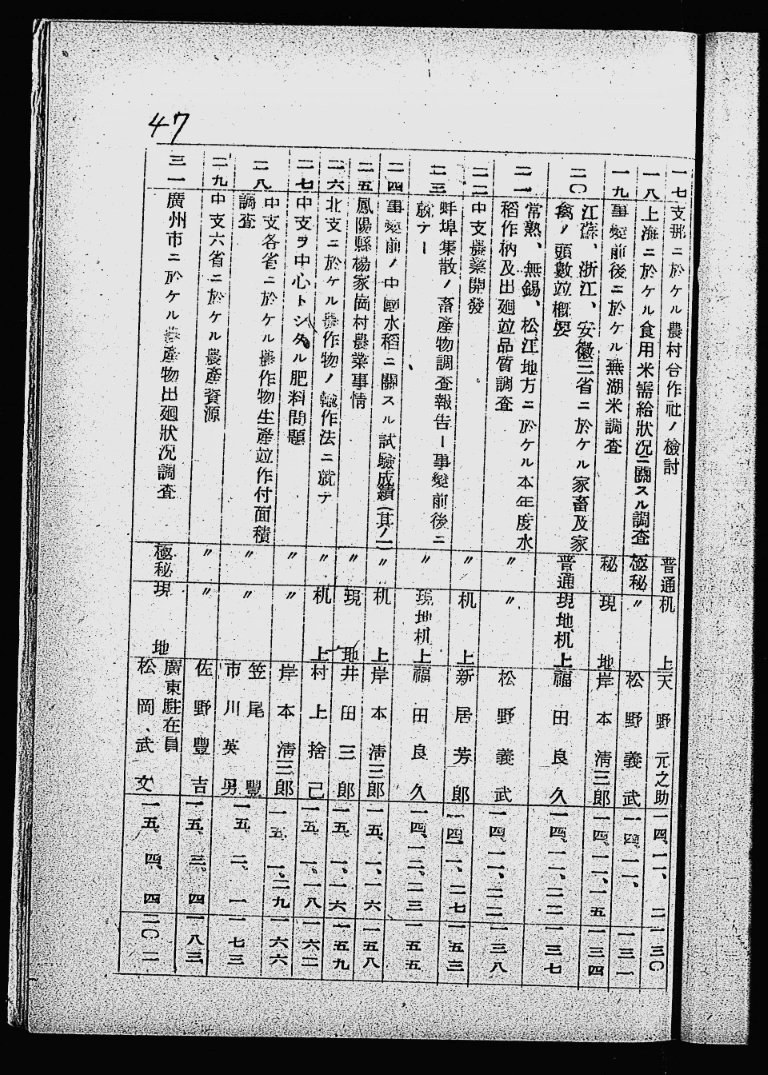 47
一七 支那ニ於ケル農村合作社ノ檢討 普通 机上 天野元之助 一四、一二、二 一三〇
一八 上海ニ於ケル食用米需給狀況ニ關スル調査 極秘 〃 松野義武 一四、一二、 一三一
一九 事變前後ニ於ケル蕪湖米調査 秘 現地 岸本清三郎 一四、一二、一五 一三四
二〇 江蘇、浙江、安徽三省ニ於ケル家畜及家
禽ノ頭數竝概要 普通 現地机上 福田良久 一四、一二、二二 一三七
二一 常熟、無錫、松江地方ニ於ケル本年度水
稻作柄及出廻竝品質調査 〃 〃 松野義武 一四、一二、二二 一三八
二二 中支農業開發 〃 机上 新居芳郎 一四、一、二七 一五三
二三 蚌埠集散ノ畜產物調査報告ー事變前後ニ
就テー 〃 現地机上 福田良久 一四、一二、二三 一五五
二四 事變前ノ中國水稻ニ關スル試驗成績(其ノ一) 〃 机上 岸本清三郎 一五、一、一六 一五八
二五 鳳陽縣楊家崗村農業事情 〃 現地 井田三郎 一五、一、一六 一五九
二六 北支ニ於ケル農作物ノ輪作法ニ就テ 〃 机上 村上捨己 一五、一、一八 一六二
二七 中支ヲ中心トシタル肥料問題 〃 〃 岸本清三郎 一五、一、二九 一六六
二八 中支各省ニ於ケル農作物生產竝作付面積
調査 〃 〃 笠尾豐
市川英男 一五、二、一 一七三
二九 中支六省ニ於ケル農產資源 〃 〃 佐野豐吉 一五、三、四 一八三
三一 廣州市ニ於ケル農產物出廻狀況調査 極秘 現地 廣東駐在員
松岡武文 一五、四、四 二〇二